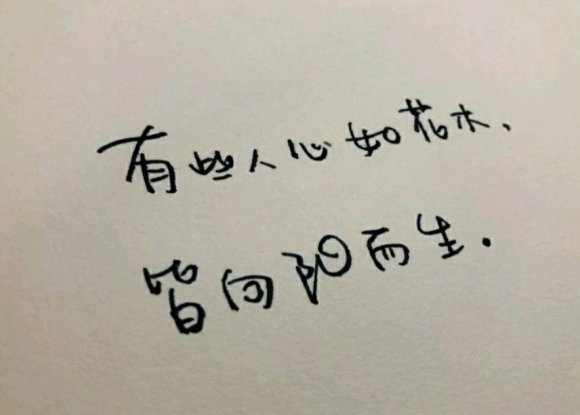 有些人心如花木、
皆向阳而生.